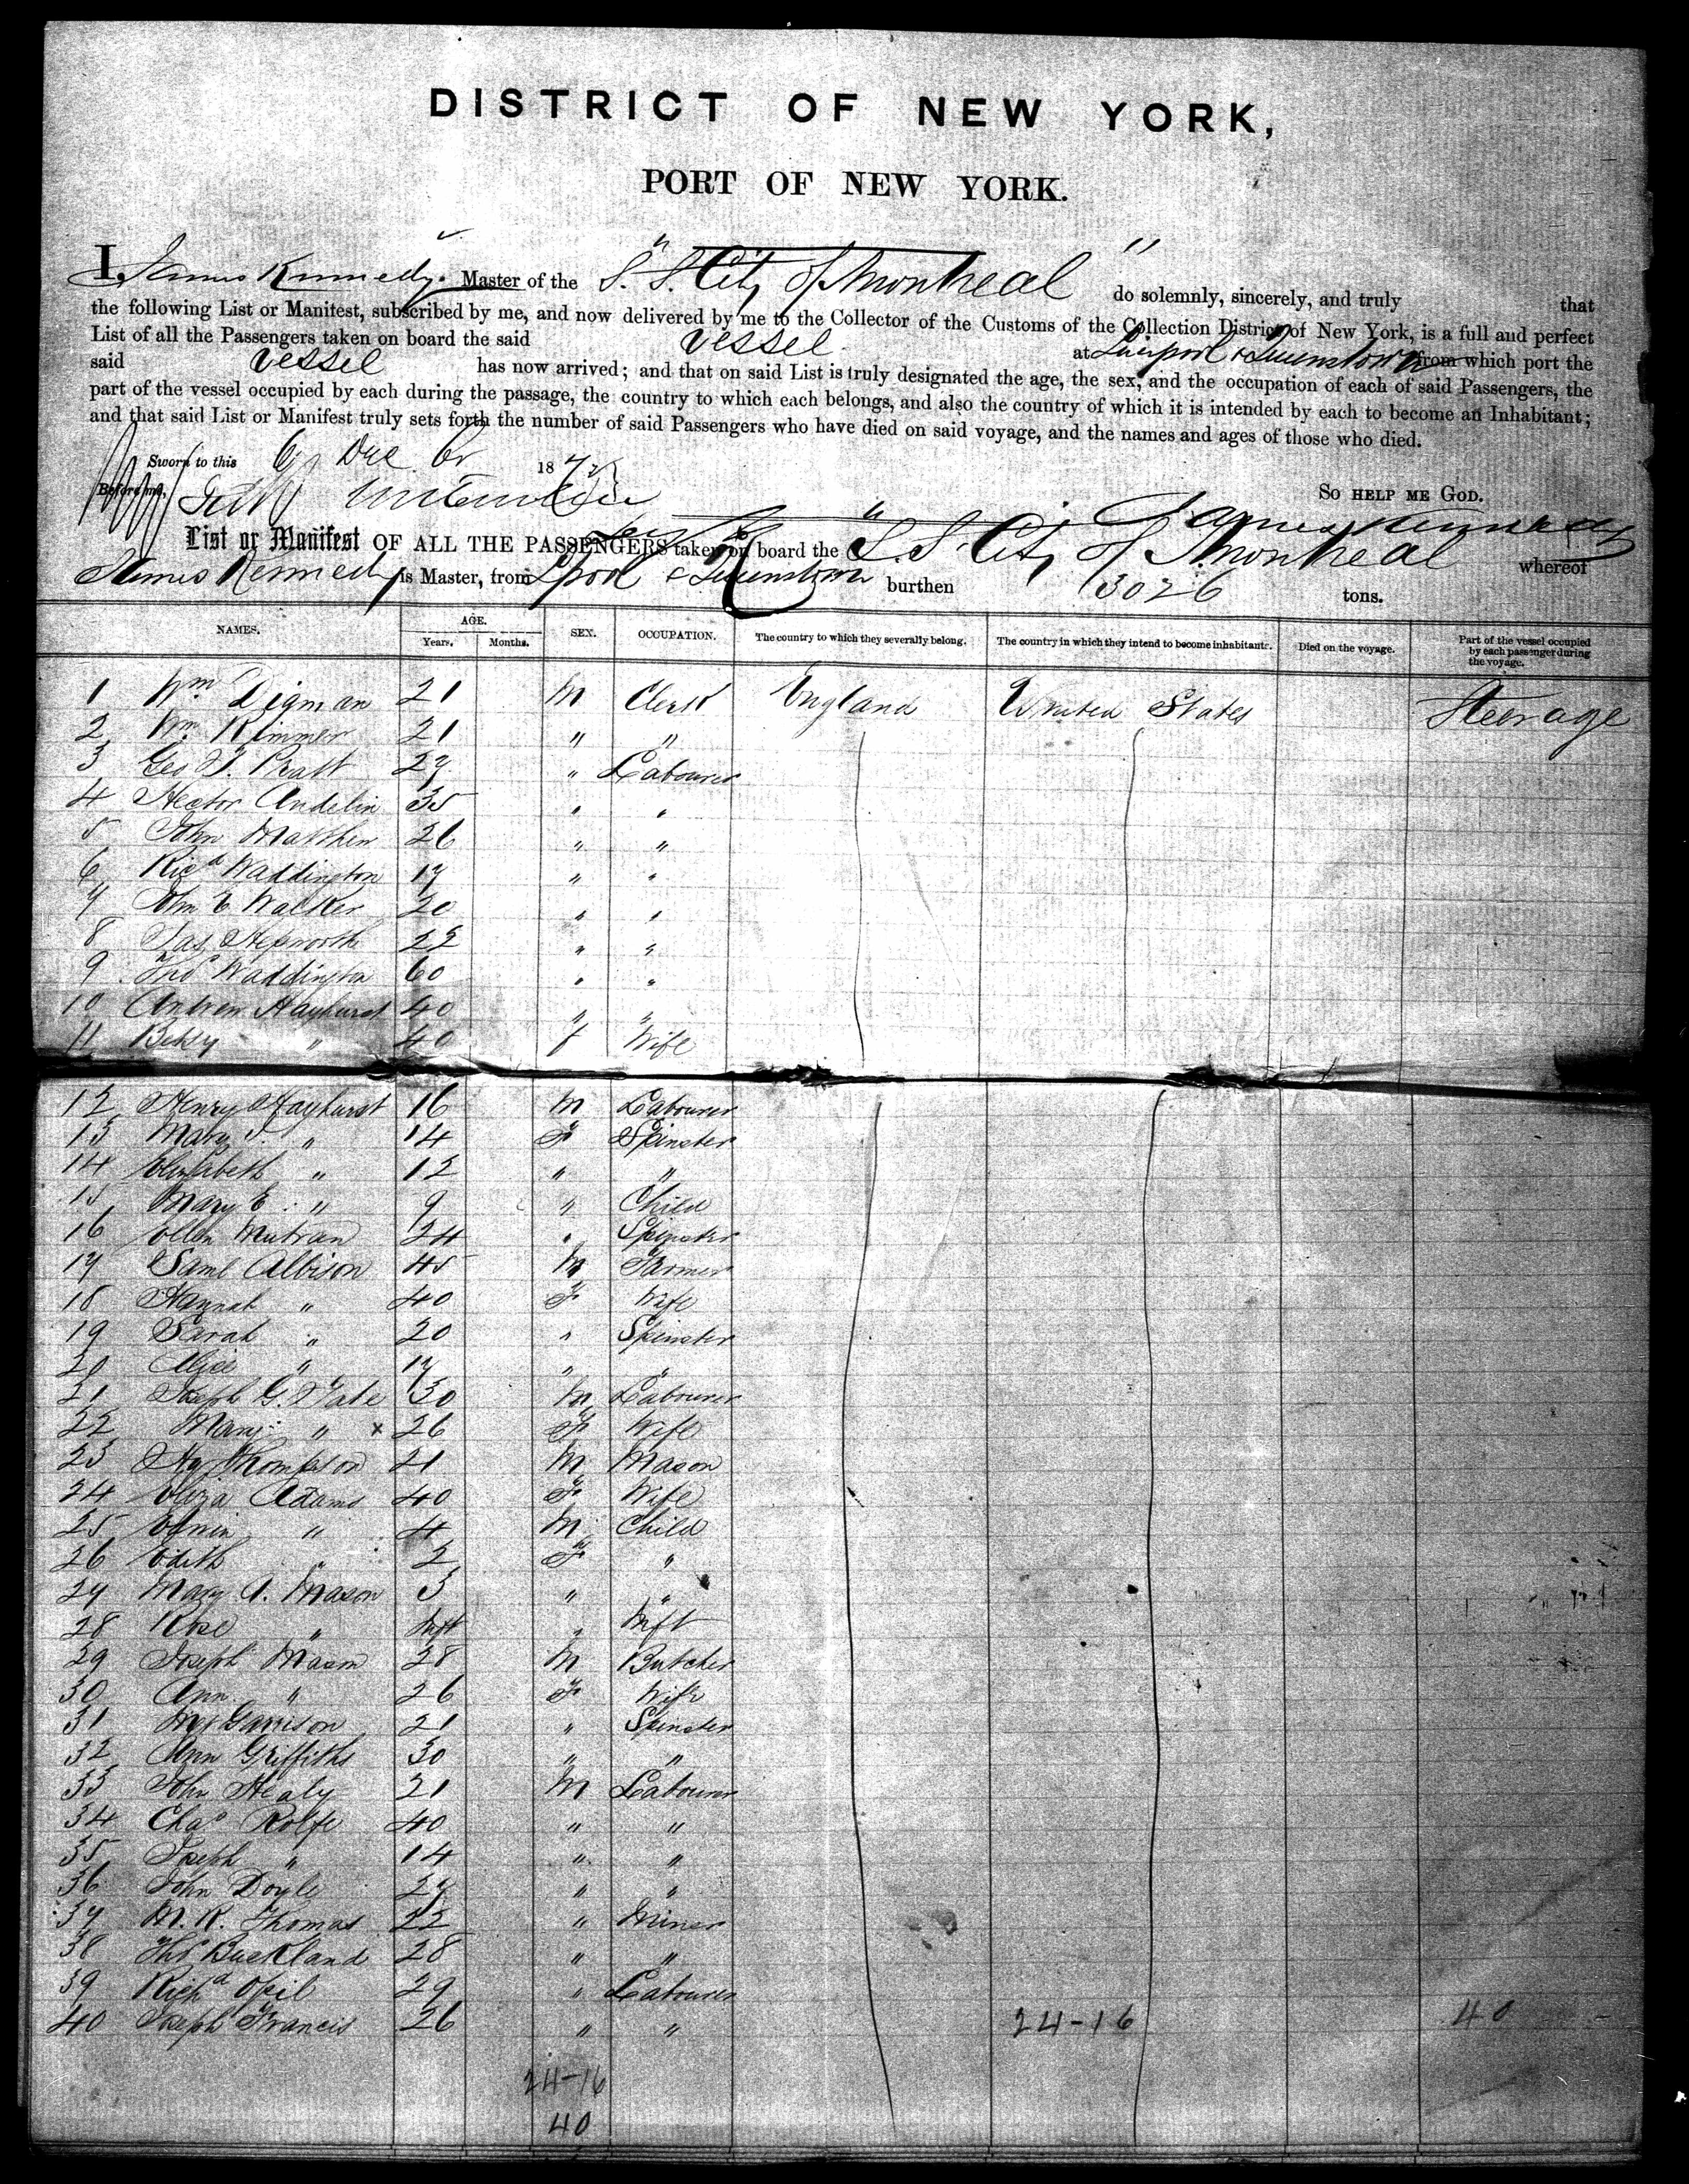 DISTRICT OF NEW YORK,
PORT OF NEW YORK.
I, James Kennedy. Master of the "S. S. City of Montreal" do solemnly, sincerely, and truly that
the following List or Manifest, subscribed by me, and now delivered by me to the Collector of the Customs of the Collection District of New York, is a full and perfect
List of all the Passengers taken on board the said Vessel at Liverpool & Queenstown from which port the
said Vessel has now arrived; and that on said List is truly designated the age, the sex, and the occupation of each of said Passengers, the
part of the vessel occupied by each during the passage, the country to which each belongs, and also the country of which it is intended by each to become an Inhabitant;
and that said List or Manifest truly sets forth the number of said Passengers who have died on said voyage, and the names and ages of those who died.
Sworn to this 6 Dec br 1872
Before me, So HELP ME GOD.
James Kennedy
List or Manifest OF ALL THE PASSENGERS taken on board the "S. S. City of Montreal whereof
James Kennedy is Master, from Lpool & Queenstown burthen 3026 tons.
NAMES. AGE. Years. Months. SEX. OCCUPATION. The country to which they severally belong. The country in which they intend to become inhabitants. Died on the voyage. Part of the vessel occupied by each passenger during the voyage.
1 Wm Digman 21 M Clerk England United States Steerage
2 Wm Rimmer 21 " "
3 Geo T. Pratt 27 " Labourer
4 Hector Andelin 35 " "
5 John Matthew 26 " "
6 Ricd Waddington 17 " "
7 John E Walker 20 " "
8 Jas Hepworth 22 " "
9 Thos Waddington 60 " "
10 Andrew Hayhurst 40 " "
11 Betsy " 40 f Wife
12 Henry Hayhurst 16 M Labourer
13 Mary " 14 F Spinster
14 Elizabeth " 12 " "
15 Mary E. " 9 " Child
16 Ellen 24 " Spinster
17 Saml Albison 45 M Farmer
18 Hannah " 40 F Wife
19 Sarah " 20 " Spinster
20 Alice " 17 " "
21 Joseph G. Tate 30 M Labourer
22 Mary " x 26 F Wife
23 Hy Thompson 21 M Mason
24 Eliza Adams 40 F Wife
25 Edwin " 4 M Child
26 Edith " 2 F "
27 Mary A. Mason 3 " "
28 Rose " Inft " Inft
29 Joseph Mason 28 M Butcher
30 Ann " 26 F Wife
31 Mgt Garrison 21 " Spinster
32 Ann Griffiths 30 " "
33 John Healy 21 M Labourer
34 Chas Rolfe 40 " "
35 Joseph " 14 " "
36 John Doyle 27 " "
37 M. R. Thomas 22 " Miner
38 Thos Buckland 28 " "
39 Richd Opil 29 " Labourer
40 Joseph Francis 26 " " 24-16 40
24-16
40